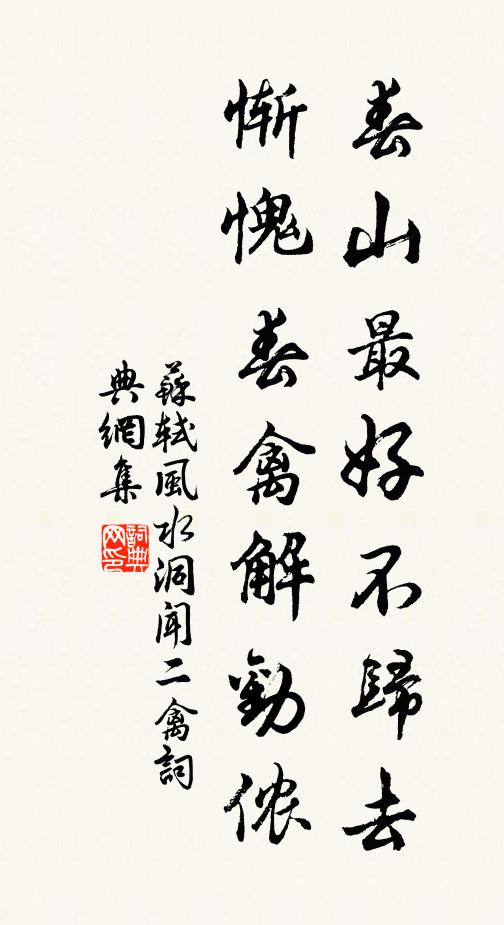 春山最好不歸去
慚愧春禽解勸侬
蘇軾風水洞聞二禽詞
典網集
詞典网印